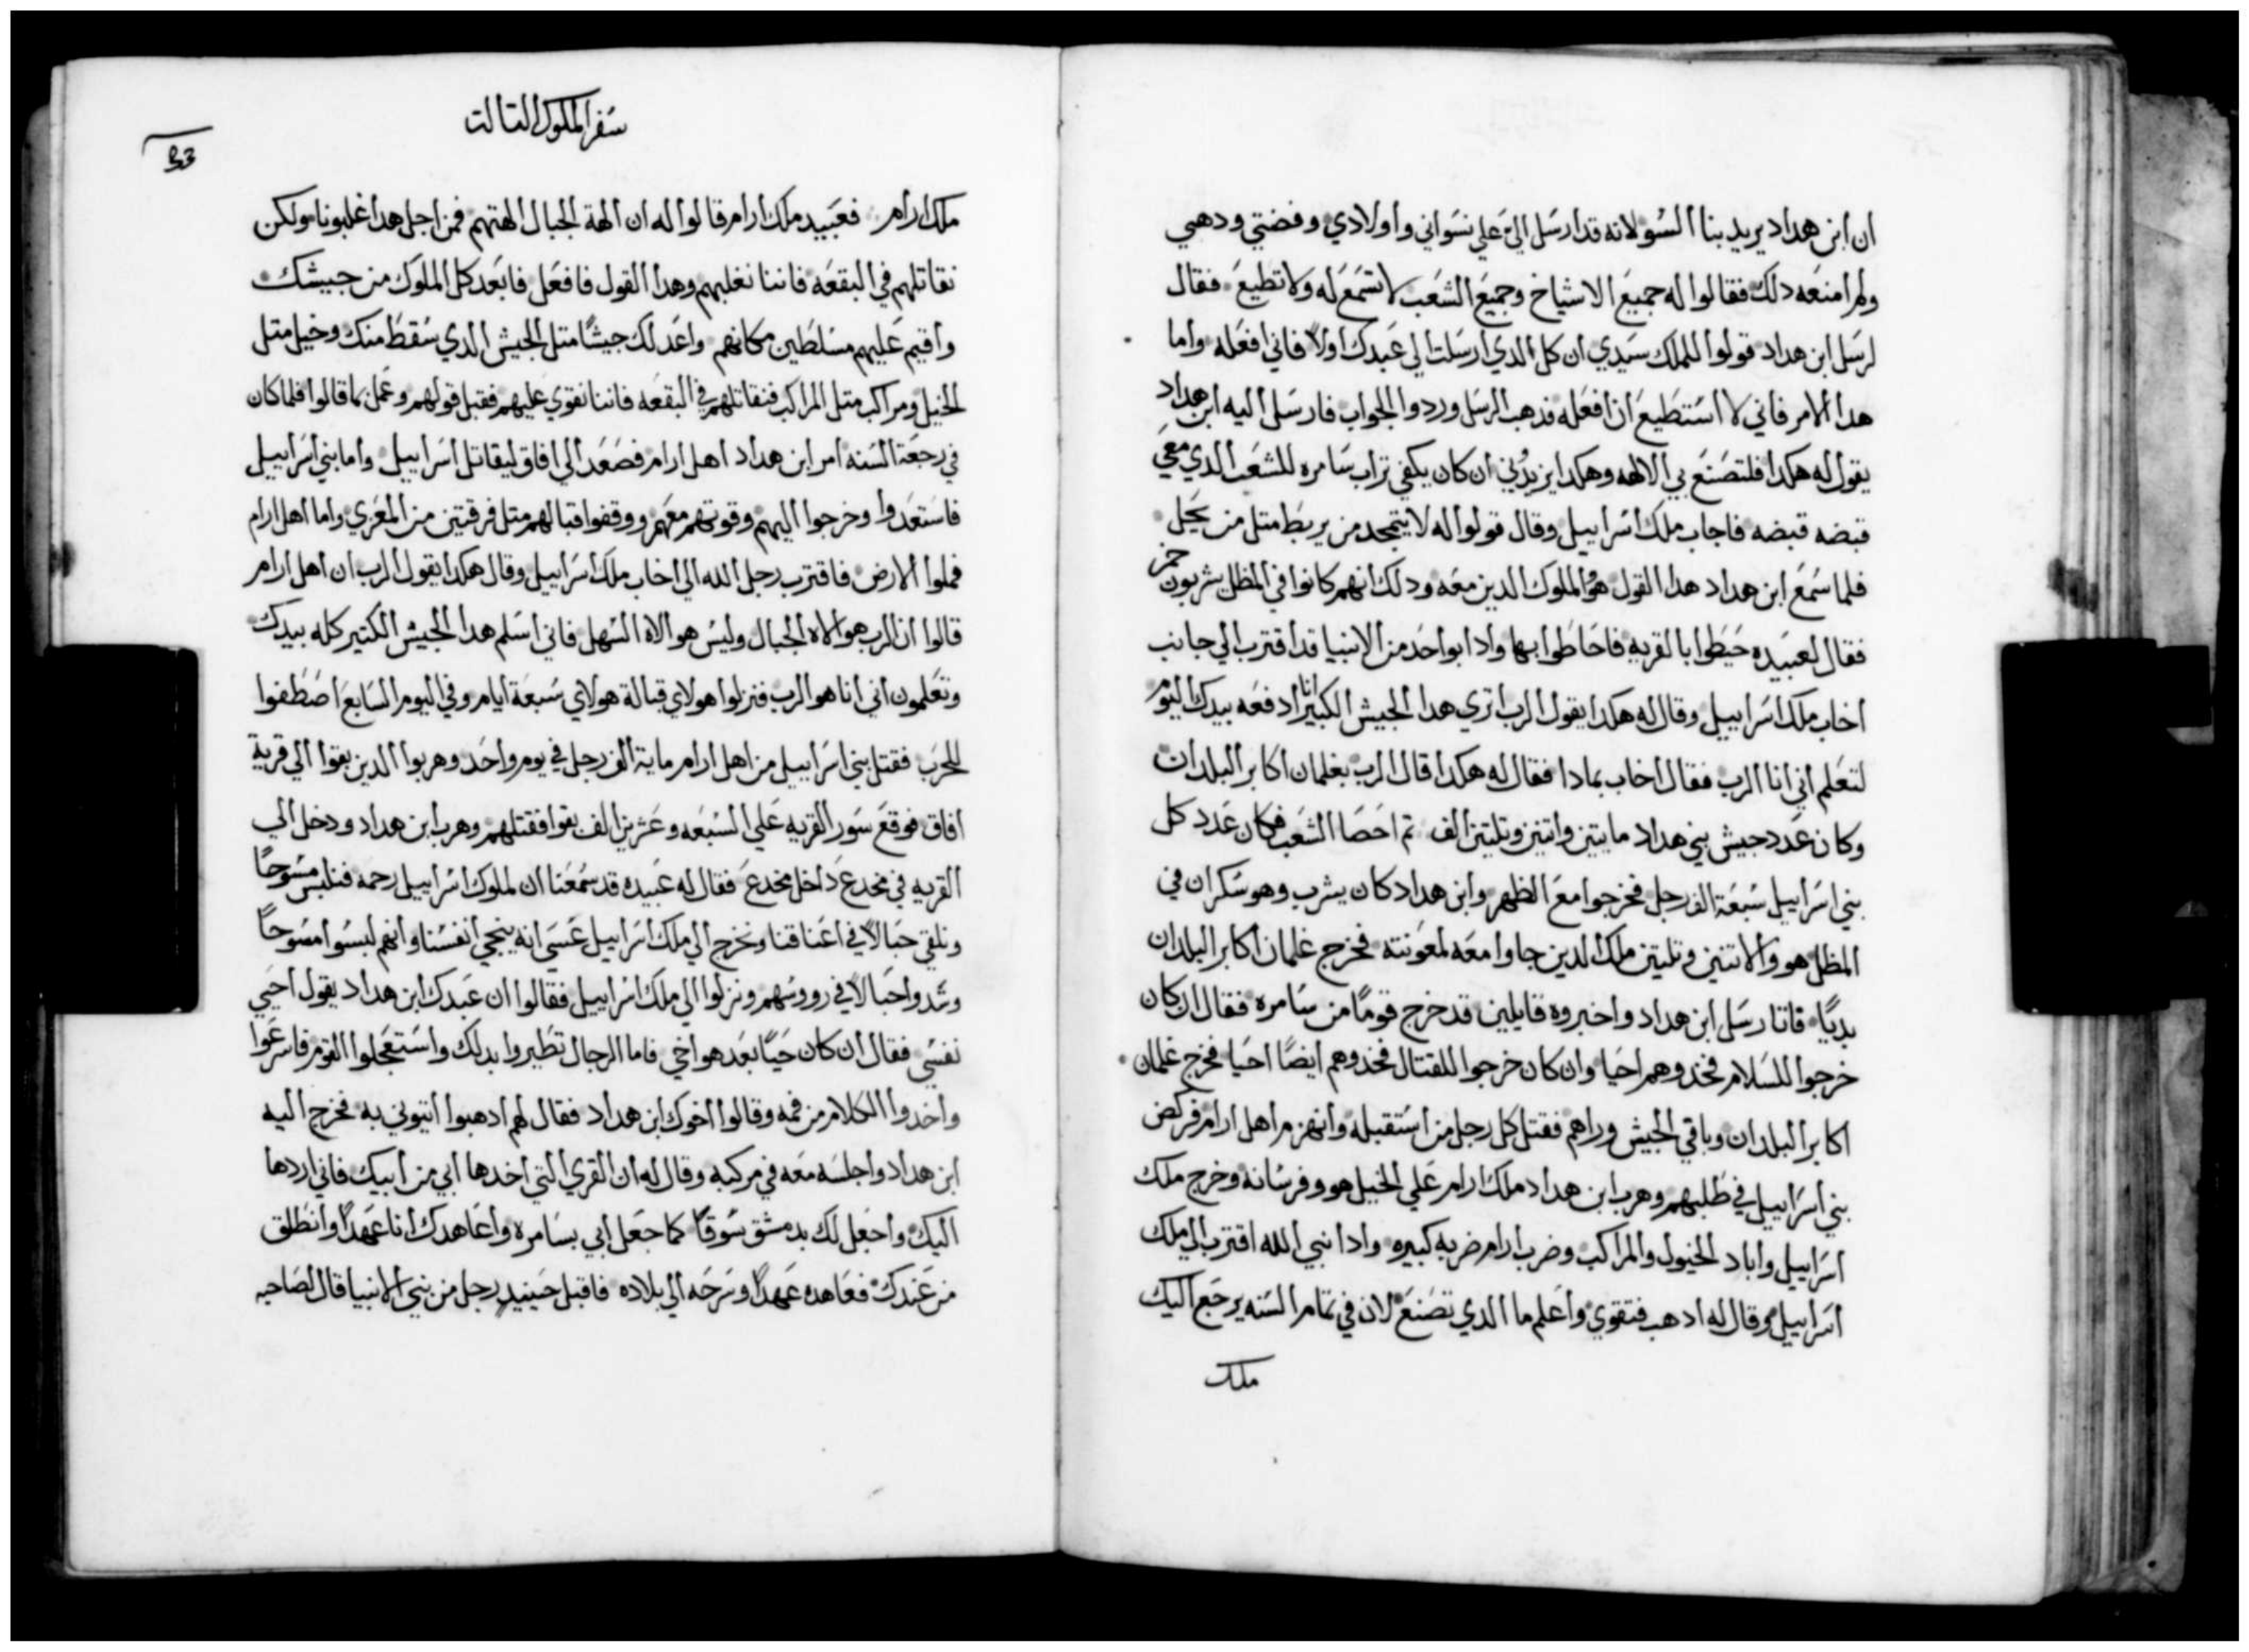 ان ابن هداد يريد بنا السو لانه قد ارسل الي علي نسواني واولادي وفضتي ودهبي
ولم امنعه دلك فقالوا له جميع الاشياخ وجميع الشعب لا تسمع له ولا تطيع فقال
لرسل ابن هداد قولوا للملك سيدي ان كل الدي ارسلت الي عبدك اولاً فاني افعله واما
هدا الامر فاني لا استطيع ان افعله فدهب الرسل وردوا الجواب فارسل اليه ابن هداد
يقول له هكدا فلتصنع بي الالهه وهكدا يزيدني ان كان يكفي تراب سامره للشعب الدي معي
قبضه قبضه فاجاب ملك اسراييل وقال قولوا له لا يتمجد من يربط متل من يحل
فلما سمع ابن هداد هدا القول هو والملوك الدين معه ودلك انهم كانوا في المظل يشربون خمر
فقال لعبيده حيطوا بالقريه فاحاطوا بها وادا بواحد من الانبيا قد اقترب الي جانب
اخاب ملك اسراييل وقال له هكدا يقول الرب اتري هدا الجيش الكبير انا ادفعه بيدك اليوم
لتعلم اني انا الرب فقال اخاب بمادا فقال له هكدا قال الرب بغلمان اكابر البلدان
وكان عدد جيش بني هداد مايتين واتنين وتلتين الف تم احصا الشعب فكان عدد كل
بني اسراييل سبعة الف رجل فخرجوا مع الظهر وابن هداد كان يشرب وهو سكران في
المظل هو والاتنين وتلتين ملك الدين جاوا معه لمعونته فخرج غلمان اكابر البلدان
بديًا فاتا رسل ابن هداد واخبروه قايلين قد خرج قومًا من سامره فقال ان كان
خرجوا للسلام فخدوهم احيا وان كان خرجوا للقتال فخدوهم ايضًا احيا فخرج غلمان
اكابر البلدان وباقي الجيش وراهم فقتل كل رجل من استقبله وانهزم اهل ارام فركض
بني اسراييل في طلبهم وهرب ابن هداد ملك ارام علي الخيل هو وفرسانه وخرج ملك
اسراييل واباد الخيول والمراكب وضرب ارام ضربه كبيره وادا نبي الله اقترب الي ملك
اسراييل وقال له ادهب فتقوي واعلم ما الدي تصنع لان في تمام السنه يرجع اليك
ملك
سفر الملوك التالت
ملك ارام فعبيد ملك ارام قالوا له ان الهة الجبال الهتهم فمن اجل هدا غلبونا ولكن
نقاتلهم في البقعه فاننا نغلبهم وهدا القول فافعل فابعد كل الملوك من جيشك
واقيم عليهم مسلطين مكانهم واعد لك جيشًا متل الجيش الدي سقط منك وخيل متل
الخيل ومراكب متل المراكب فنقاتلهم في البقعه فاننا نقوي عليهم فقبل قولهم وعمل بما قالوا فلما كان
في رجعة السنه امر ابن هداد اهل ارام فصعد الي افاق ليقاتل اسراييل واما بني اسراييل
فاستعدوا وخرجوا اليهم وقوتهم معهم ووقفوا قبالهم متل فرقتين من المعزي واما اهل ارام
فملوا الارض فاقترب رجل الله الي اخاب ملك اسراييل وقال هكدا يقول الرب ان اهل ارام
قالوا ان الرب هو الاه الجبال وليس هو الاه السهل فاني اسلم هدا الجيش الكتير كله بيدك
وتعلمون اني انا هو الرب فنزلوا هولاي قبالة هولاي سبعة ايام وفي اليوم السابع اصطفوا
للحرب فقتل بني اسراييل من اهل ارام ماية الف رجل في يوم واحد وهربوا الدين بقوا الي قرية
افاق فوقع سور القريه علي السبعه وعشرين الف بقوا فقتلهم وهرب ابن هداد ودخل الي
القريه في مخدع داخل مخدع فقال له عبيده قد سمعنا ان لملوك اسراييل رحمه فنلبس مسوحًا
ونلقي حبالاً في اعناقنا ونخرج الي ملك اسراييل عسي انه ينجي انفسنا وانهم لبسوا مسوحًا
وشدوا حبالاً في رووسهم ونزلوا الي ملك اسراييل فقالوا ان عبدك ابن هداد يقول احيي
نفسي فقال ان كان حيًا بعد هو اخي فاما الرجال تطيروا بدلك واستعجلوا القوم فاسرعوا
واخدوا الكلام من فمه وقالوا اخوك ابن هداد فقال لهم ادهبوا اتيوني به فخرج اليه
ابن هداد واجلسه معه في مركبه وقال له ان القري التي اخدها ابي من ابيك فاني اردها
اليك واجعل لك بدمشق سوقًا كما جعل ابي بسامره واعاهدك انا عهدًا وانطلق
من عندك فعاهده عهدًا وسرحه الي بلاده فاقبل حينيد رجل من بني الانبيا قال لصاحبه